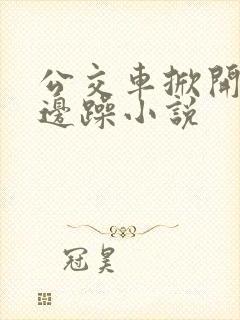 公交車掀開
邊躁小説
冠昊